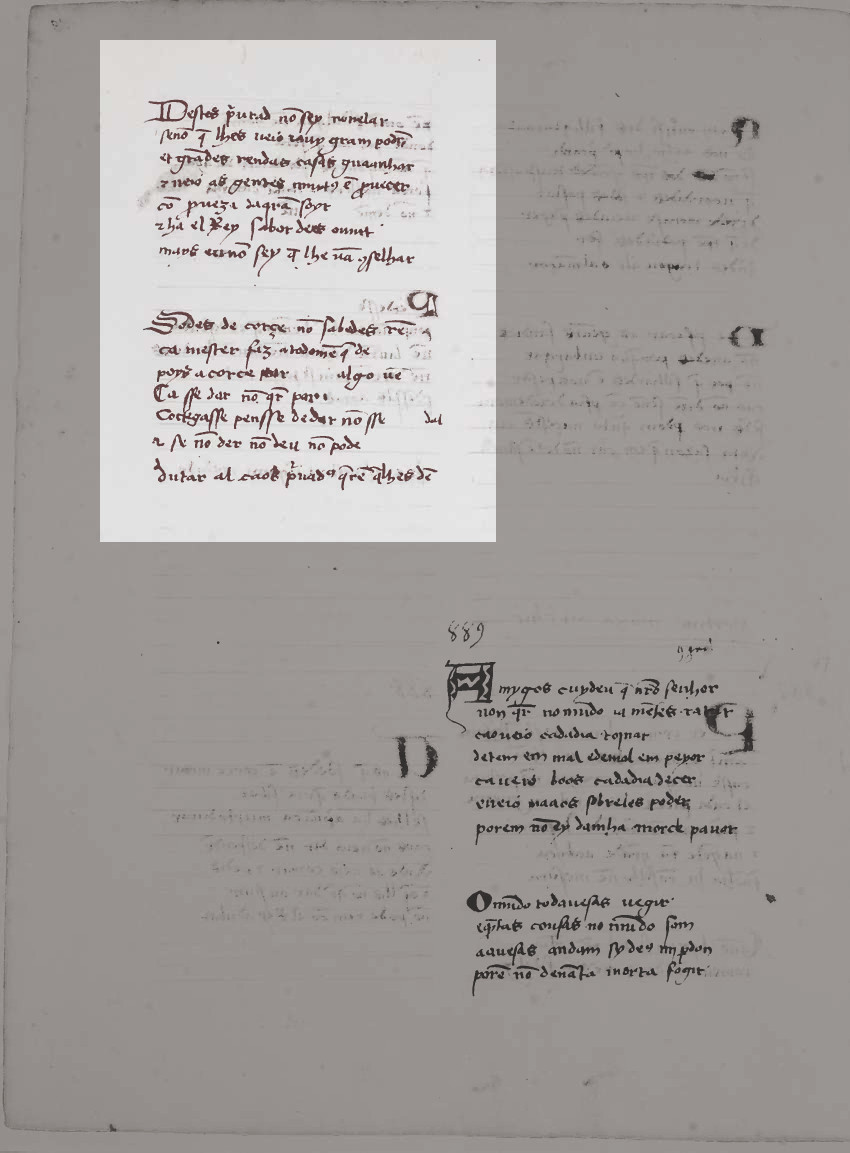 Destes p'uad nō sey nouelar
senō q̄ lhes ueio muy gram podr̄
et grādes rendas casas guaanhar
⁊ ueio as gentes muyt9 ē proecer
cō proueza daqrā soyr
⁊ hā el Rey sabor deos ouuir
mays eu nō sey q̄ lhe uā 9selhar
Sodes de corte nō sabedes rē
ca mester faz atodomē q̄ de
poys a corte algo uē
Ca sse dar nō qr̄ por
Correasse pensse dedar nō sse dal
⁊ se nō der nō deu nō pode
dutar al caos p'uad9 q̄rē q̄lhes dē
889
Amygos cuydeu q̄ nrō senhor
non qr̄ no mūdo ia mētes
ca oueio cadadia tornar
debem em mal edemal em peyor
ca ueio boos cadadia decer
eueio maaos sobreles poder
porem nō ey damha morte pauor
O mūdo todauesas uegir
eqātas cousas no mūdo som
aauesas andam sy de9 mi pdon
porē nō deuāta morta fogir